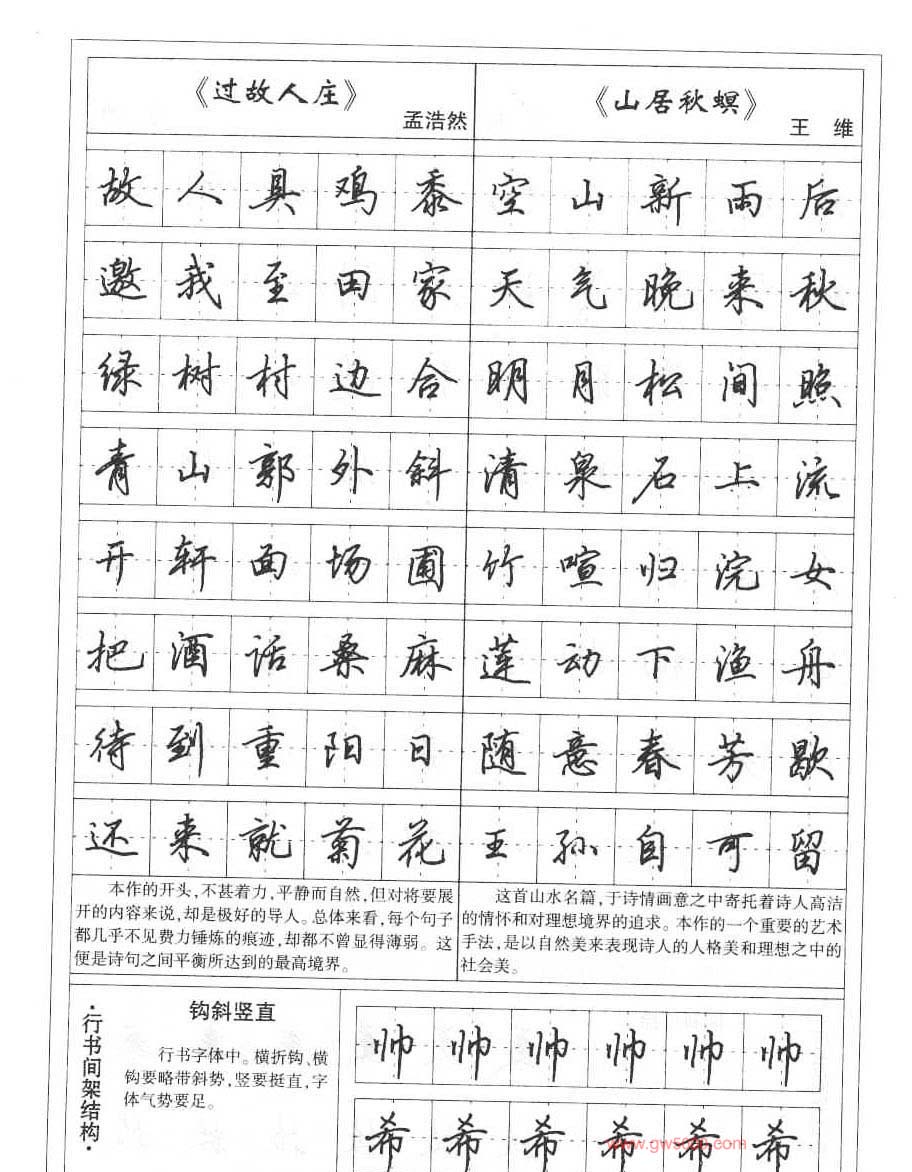 《过故人庄》
孟浩然
故人具鸡黍
邀我至田家
绿树村边合
青山郭外斜
开轩面场圃
把酒话桑麻
待到重阳日
还来就菊花
本作的开头,不甚着力,平静而自然,但对将要展
开的内容来说,却是极好的导人。总体来看,每个句子
都几乎不见费力锤炼的痕迹,却都不曾显得薄弱。这
便是诗句之间平衡所达到的最高境界。
《山居秋螟》
王 维
空山新雨后
天气晚来秋
明月松间照
清泉石上流
竹喧归浣女
莲动下渔舟
随意春芳歇
王孙自可留
这首山水名篇,于诗情画意之中寄托着诗人高洁
的情怀和对理想境界的追求。本作的一个重要的艺术
手法,是以自然美来表现诗人的人格美和理想之中的
社会美。
·行书间架结构·
钩斜竖直
行书字体中。横折钩、横
钩要略带斜势,竖要挺直,字
体气势要足。
帅帅帅帅帅帅
希希希希希希